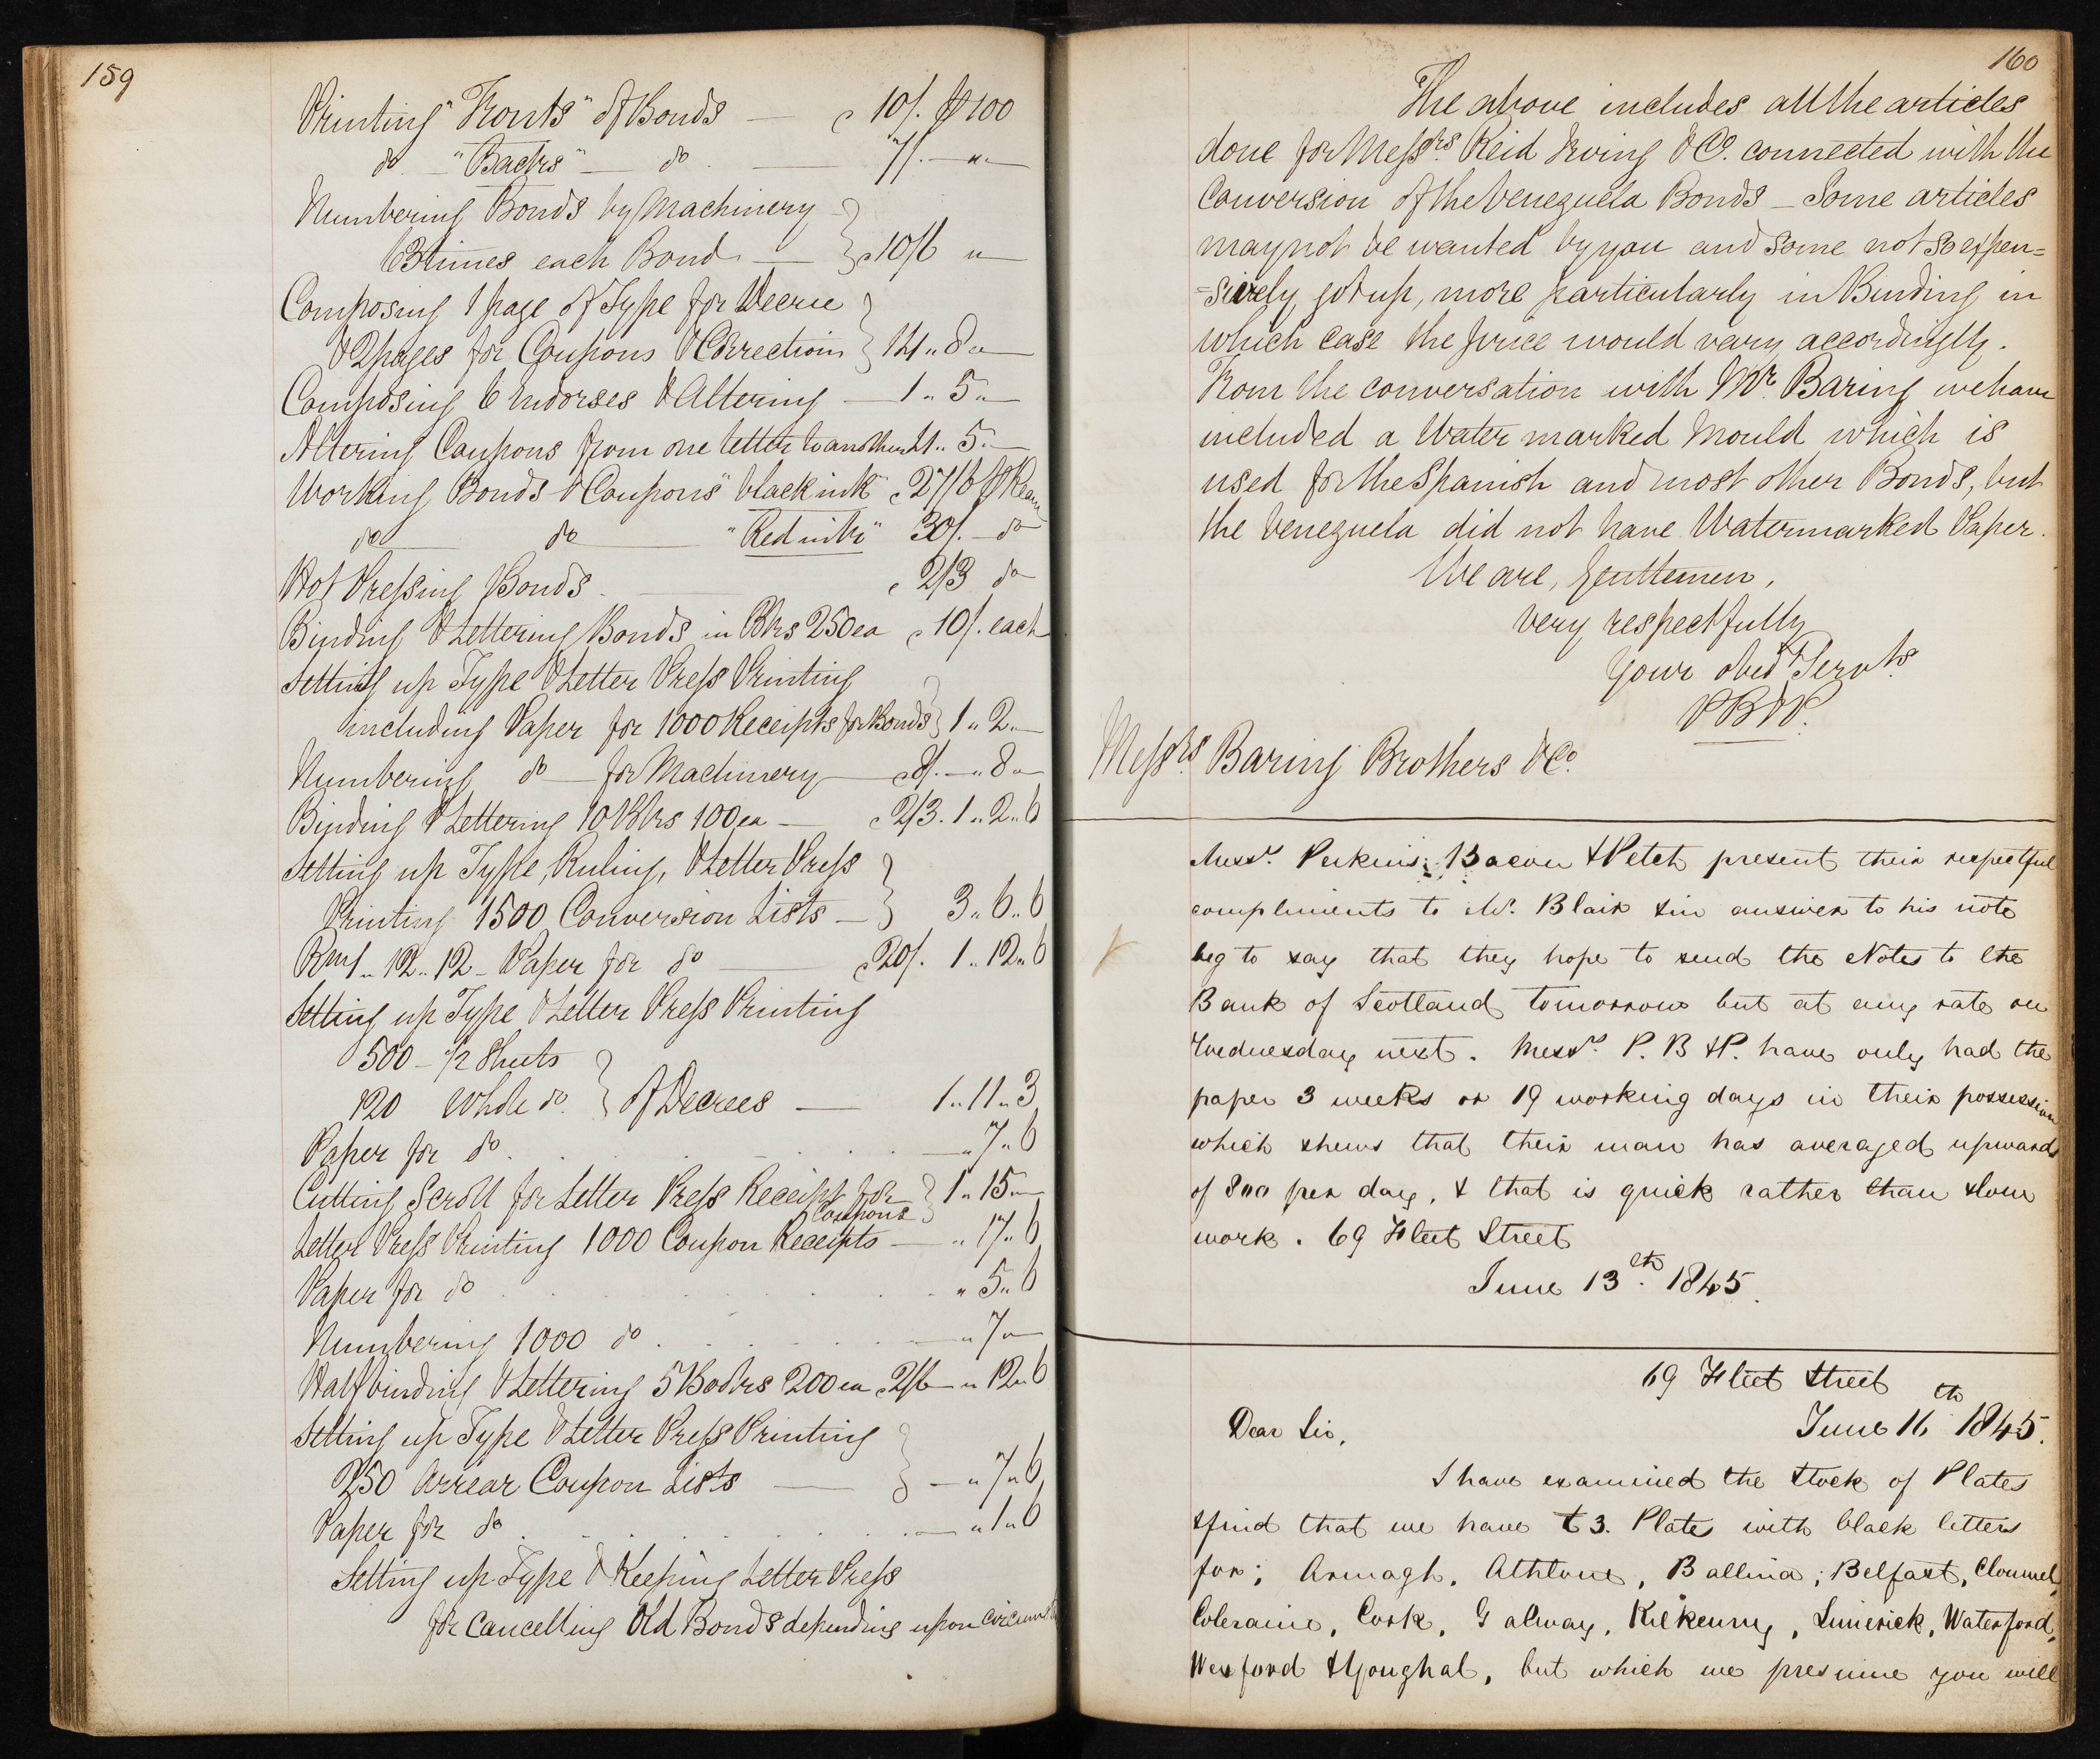 159
Printing "Fronts" of Bonds — @ 10/. ⅌ 100
do — "Backs" — do. — 7/. — "
Numbering Bonds by Machinery
63 times each Bond — @ 10/6 "
Composing 1 page of Type for Decree
& 2 pages for Coupons & Correction 14 " 8 "
Composing 6 Endorses & Altering — 1 " 5 "
Altering Coupons from one letter to another 1 " 5 "
Working Bonds & Coupons "black ink" @ 27/6 ⅌ Ream
do do "Red ink" 30/. — do
Hot Pressing Bonds. @ 2/3 do
Binding & Lettering Bonds in Bks 250 ea @ 10/. each
Setting up Type & Letter Press Printing
including Paper for 1000 Receipts for Bonds 1 " 2 "
Numbering do — for Machinery — @ 8/. — " 8 "
Binding & Lettering 10 Bks 100 ea — @ 2/3. 1 " 2 " 6
Setting up Type, Ruling, & Letter Press
Printing 1500 Conversion Lists — 3 " 6 " 6
Rms 1 " 12 " 12 — Paper for do — @ 20/. 1 " 12 " 6
Setting up Type & Letter Press Printing
500 — 1/2 Sheets
120 Whole do. of Decrees — 1 " 11 " 3
Paper for do. — " 7 " 6
Cutting Scroll for Letter Press Receipt for
Coupons 1 " 15 "
Letter Press Printing 1000 Coupon Receipts — " 17 " 6
Paper for do " 5 " 6
Numbering 1000 do. — " 7 "
Half binding & Lettering 5 Books 200 ea @ 2/6 — " 12 " 6
Setting up Type & Letter Press Printing
250 Arrear Coupon Lists — " 7 " 6
Paper for do. — " 1 " 6
Setting up Type & Keeping Letter Press
for Cancelling Old Bonds depending upon
160
The above includes all the articles
done for Messrs. Reid Irving & Co. connected with the
Conversion of the Venezuela Bonds — Some articles
may not be wanted by you and some not so expen=
=sively got up, more particularly in Binding in
which case the price would vary accordingly.
From the conversation with Mr. Baring we have
included a Water marked Mould which is
used for the Spanish and most other Bonds, but
the Venezuela did not have Watermarked Paper.
We are, Gentlemen,
very respectfully
Your obedt. Servts.
P B & P.
Messrs. Baring Brothers & Co.
Messrs. Perkins, Bacon & Petch present their respectful
compliments to Mr. Blair & in answer to his note
beg to say that they hope to send the Notes to the
Bank of Scotland tomorrow but at any rate on
Wednesday next. Messrs. P. B & P. have only had the
paper 3 weeks or 19 working days in their possession
which shews that their man has averaged upwards
of 800 per day, & that is quick rather than slow
work. 69 Fleet Street
June 13th. 1845.
69 Fleet Street
June 16th 1845.
Dear Sir,
I have examined the stock of Plates
& find that we have 3. Plates with black letters
for; Armagh, Athlone, Ballina; Belfast, Clonmel,
Coleraine, Cork, Galway, Kilkenny, Limerick, Waterford,
Wexford & Youghal, but which we presume you will